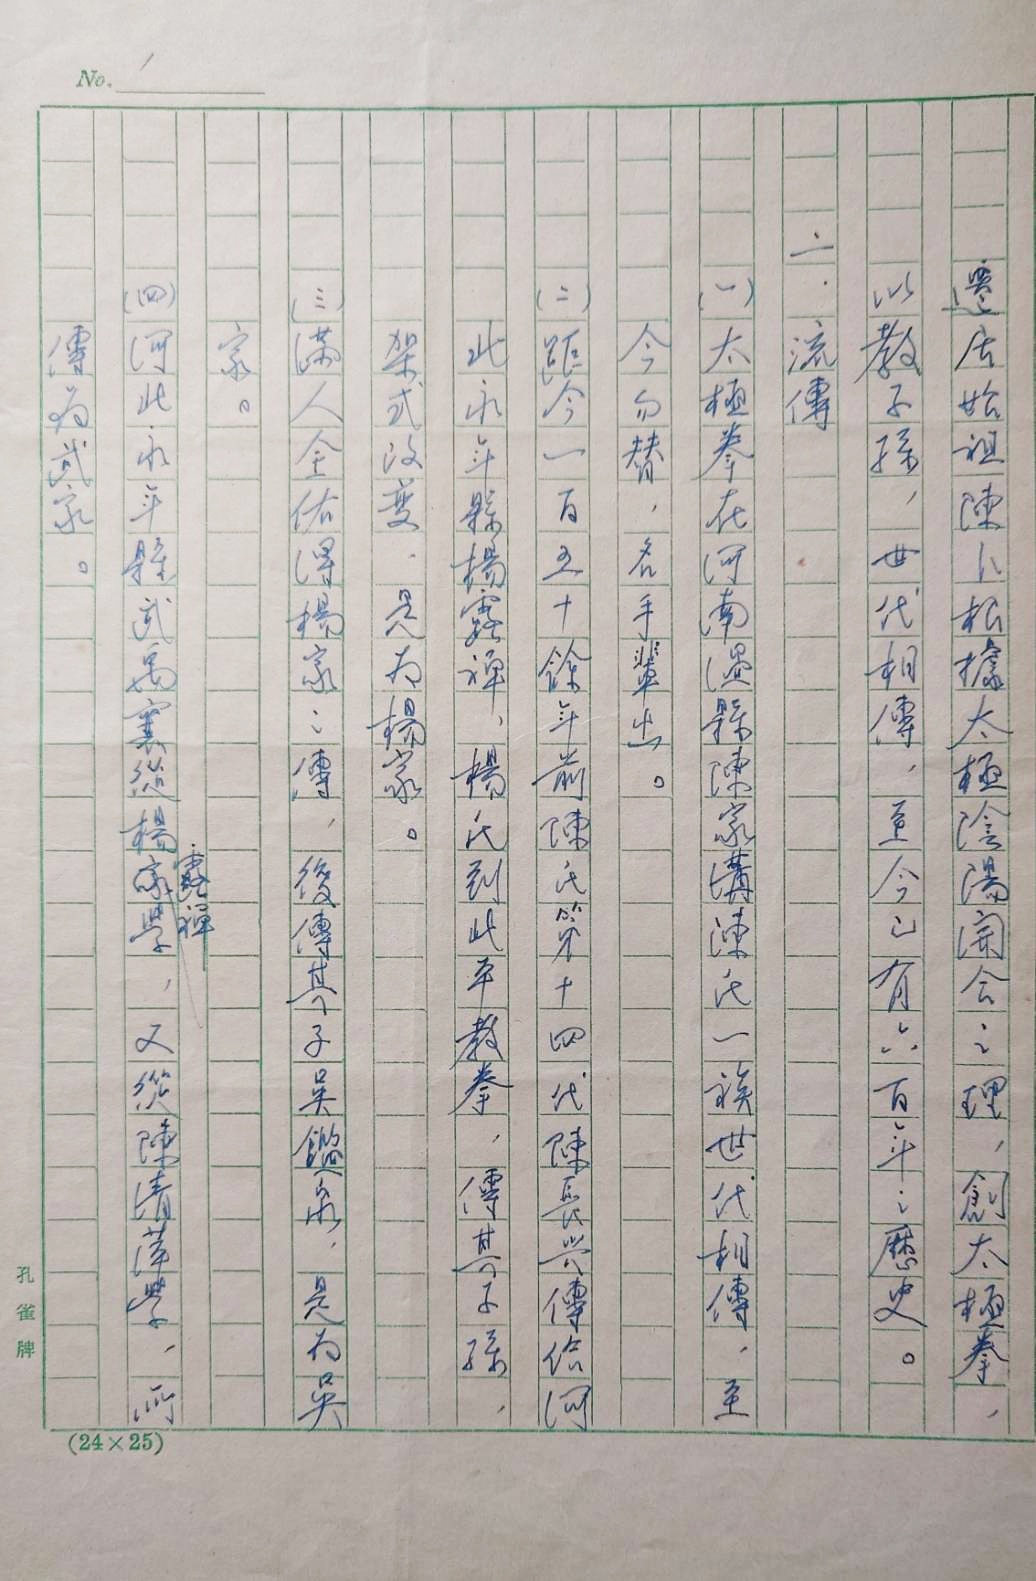 No. 1
遷居始祖陳卜根據太極陰陽開合之理，創太極拳，
以教子孫，世代相傳，至今已有六百年之歷史。
二．流傳
(一)太極拳在河南溫縣陳家溝陳氏一族世代相傳，至
今勿替，名手輩出。
(二)距今一百五十餘年前陳氏第十四代陳長兴傳给河
北永年縣楊露禪、楊氏到北平教拳，傳其子孫，
架式改变．是为楊家。
(三)滿人全佑得楊家之傳，後傳其子吴鑑泉，是为吴
家。
(四)河北永年縣武禹襄從楊家學，又從陳清萍學，所
露禪
傳为武家。
孔雀牌
(24×25)